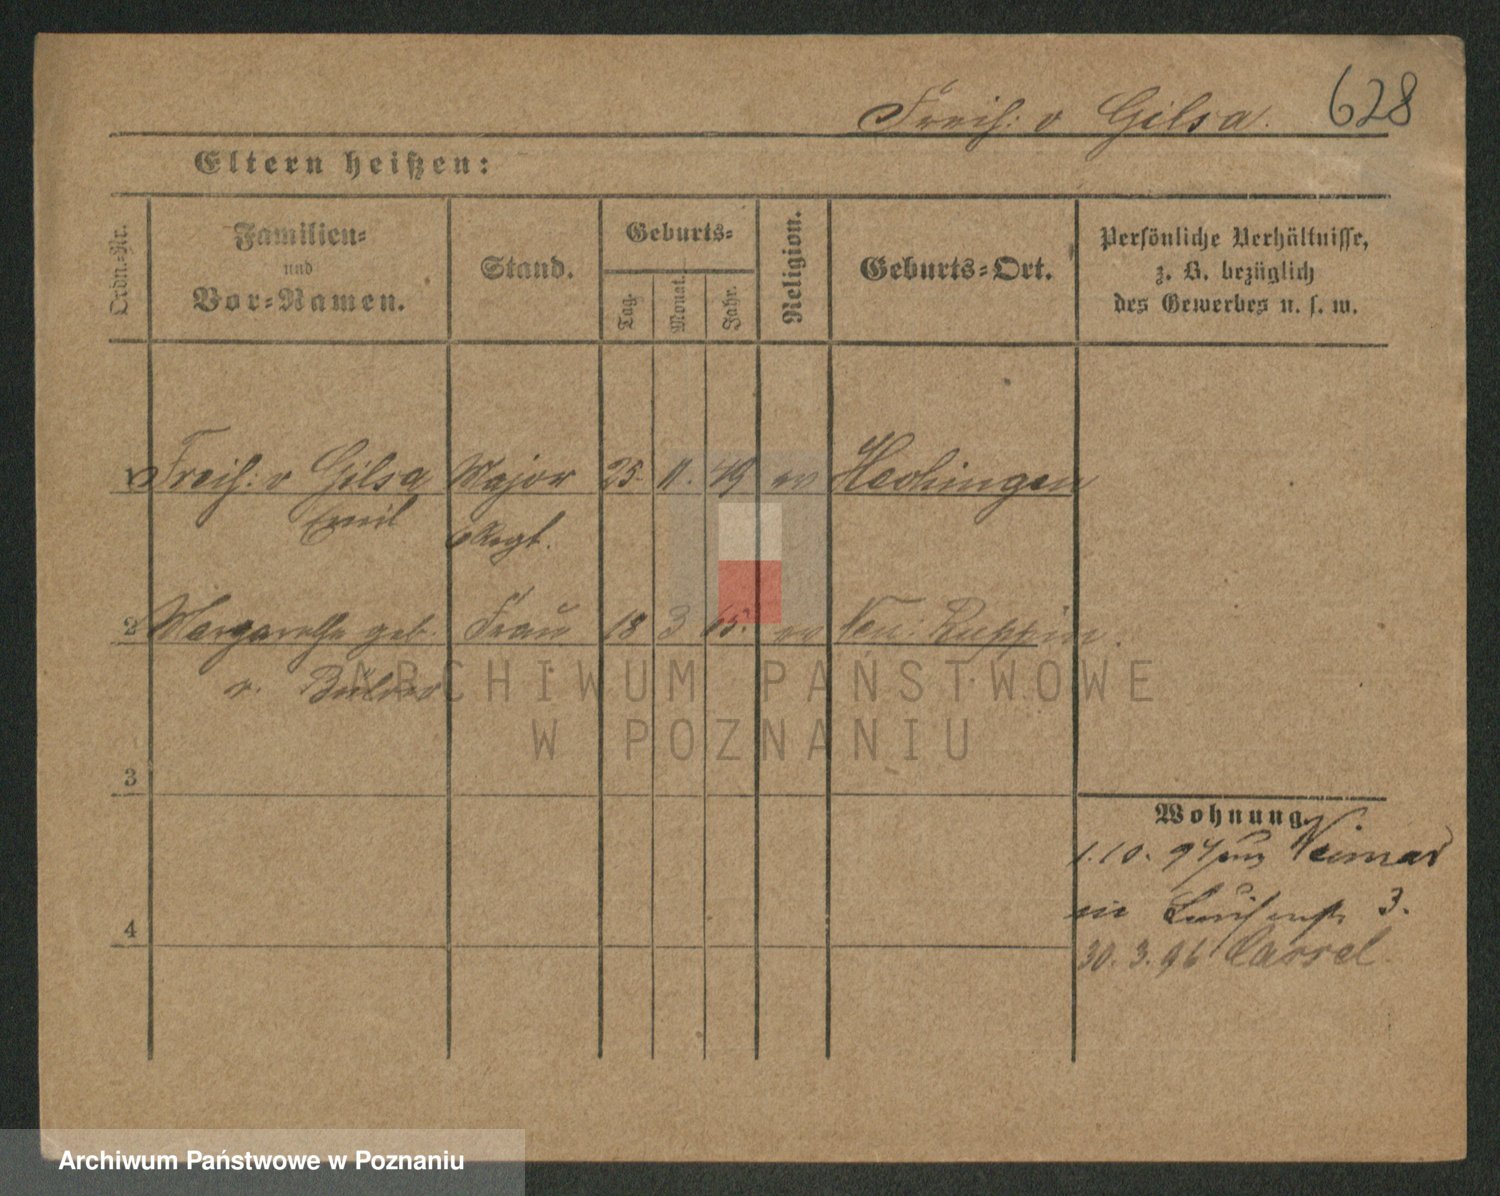 Freih: v Gilsa. 628
Eltern heißen:
Ordn.-Nr.
Familien-
und
Vor-Namen.
Stand.
Geburts-
Tag.
Monat.
Jahr.
Religion.
Geburts-Ort.
Persönliche Verhältnisse,
z. B. bezüglich
des Gewerbes u. s. w.
Freih: v Gilsa Major 25. 11. 49 ev Hechingen
Emil 6 Regt.
2 Margarethe geb. Frau 18 3 65. ev Neu: Ruppin.
v. Bülow
ARCHIWUM PAŃSTWOWE
W POZNANIU
3
Wohnung.
1.10. 94 aus Weimar
in Luisenstr 3.
4
30. 3. 96 Cassel.
Archiwum Państwowe w Poznaniu